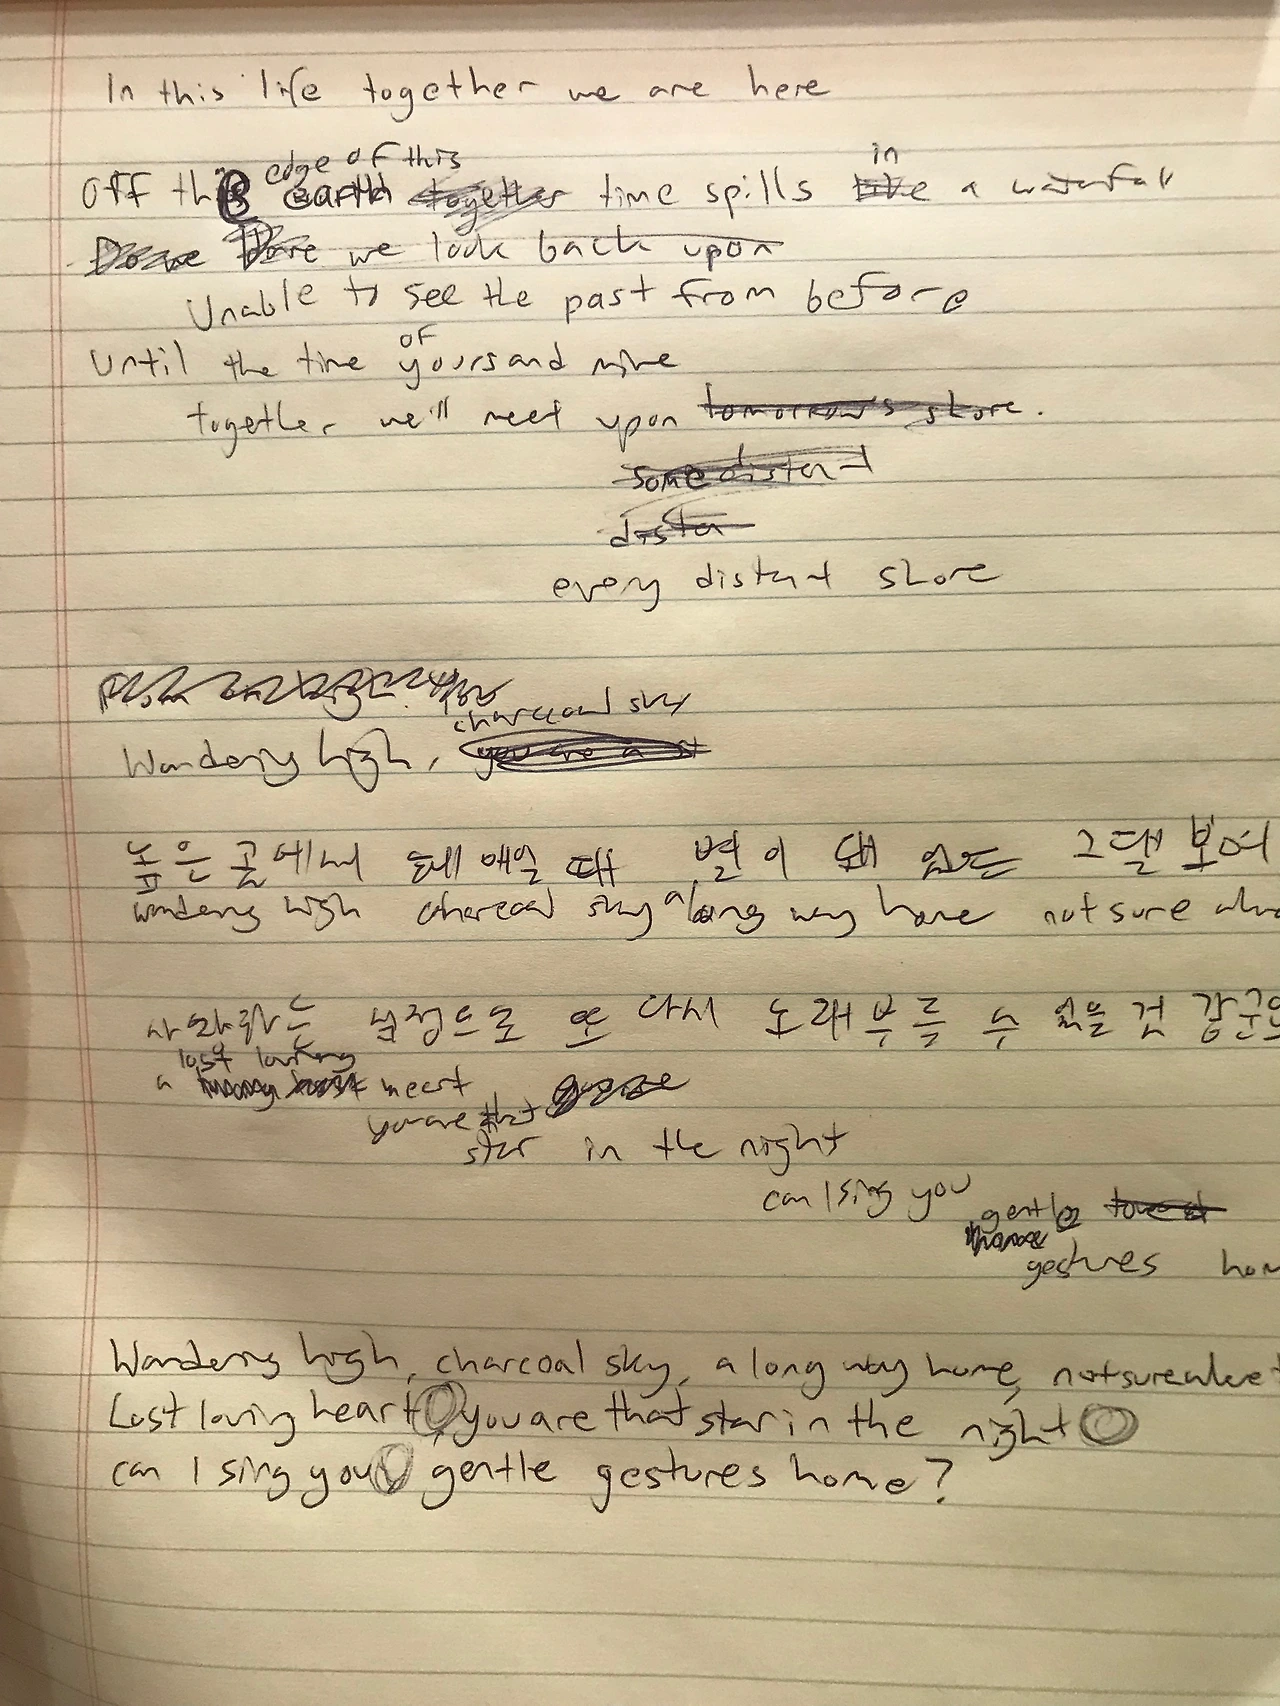 In this life together we are here
edge of this in
Off the earth together time spills like a waterfall
we look back upon
Unable to see the past from before
of
Until the time yours and mine
together we'll meet upon tomorrow's shore.
some distant
dista
every distant shore
charcoal sky
Wandering high, you are a st
높은 곳에서 헤매일 때 별이 돼 있는 그댈 보여
wandering high charcoal sky a long way home not sure
사랑는 으로 또 다시 노래 부를 수 있을 것
lost loving
a heart
you are that
star in the night
can I sing you
gentle
gestures
Wandering high, charcoal sky, a long way home, not sure
Lost loving heart, you are that star in the night
can I sing you gentle gestures home?